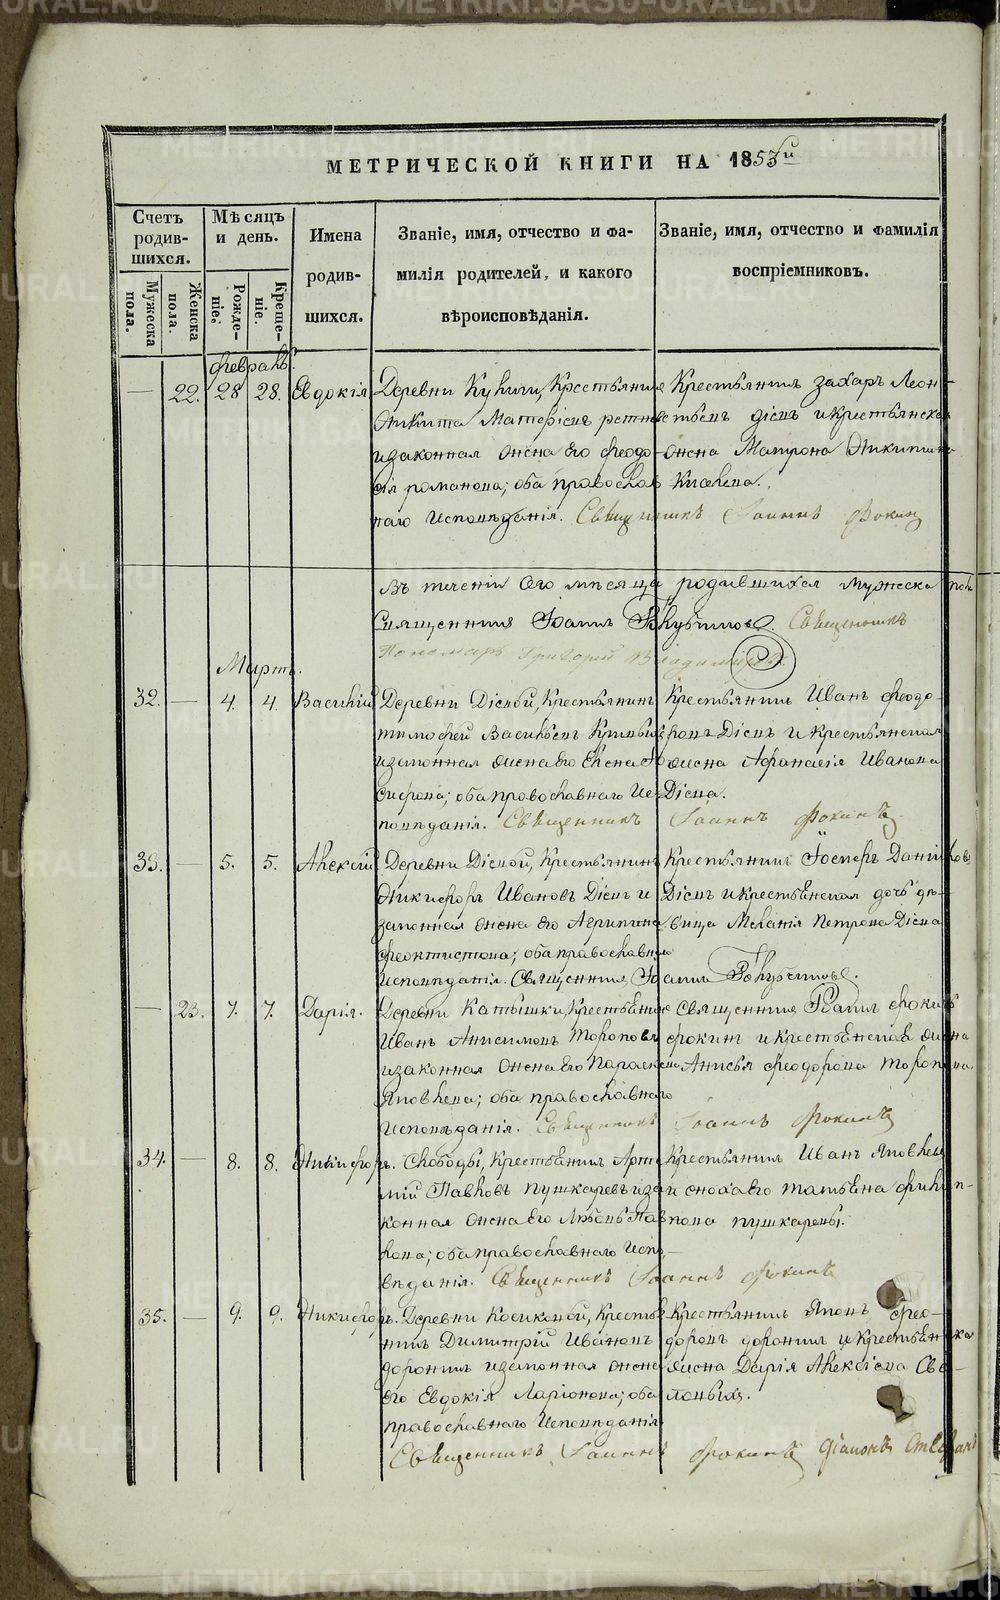 МЕТРИЧЕСКОЙ КНИГИ НА 1853й
Счетъ родив-шихся.
Мужеска пола.
Женска пола.
Мѣсяцъ и день.
Рожде-ніе.
Креще-ніе.
Имена родив-шихся.
Званіе, имя, отчество и фа-
милія родителей, и какого
вѣроисповѣданія.
Званіе, имя, отчество и фамилія
воспріемниковъ.
февраль.
— 22. 28 28. Евдокія
Деревни Крестьянинъ
Никита
и законная жена его феодо-
сія романова; оба православ
наго исповѣданія. Священникъ Іоаннъ Фокинъ
Крестьянинъ захаръ Леон-
тьевъ дієвъ и крестьянская
жена Матрона Никитина
Киселева.
Въ теченіи сего мѣсяца родившихся мужеска пола
Священникъ Іоаннъ Священникъ
Пономарь Григорій
Мартъ.
32. — 4. 4. Василій
Деревни Дієвой, Крестьянинъ
тимофей Васильевъ
и законная жена его Елена
оба православнаго ис-
повѣданія. Священникъ Іоаннъ Фокинъ
Крестьянинъ Иванъ феодо-
ровъ Дієвъ и крестьянская
жена Афанасія Иванова
Дієва.
33. — 5. 5. Алексій
Деревни Дієвой, Крестьянинъ
Никифоръ Ивановъ Дієвъ и
законная жена его Агрипина
феоктистова; оба православнаго
исповѣданія. Священникъ Іоаннъ
Крестьянинъ Іосифъ Данійловъ
Дієвъ и крестьянская дочь дѣ-
вица Меланія Петрова Дієва
— 23. 7. 7. Дарія.
Деревни Катышки, Крестьянинъ
Иванъ Анисимовъ Тороповъ
и законная жена его Параскева
Яковлева; оба православнаго
исповѣданія. Священникъ Іоаннъ Фокинъ
Священникъ Іоаннъ фокинъ
фокинъ и крестьянская жена
Анисья феодорова торопова
34. — 8. 8. Никифоръ.
Слободы, Крестьянинъ Арте
мій Павловъ пушкаревъ и за
конная жена его Любовь Пав
лова; оба православнаго испо-
вѣданія. Священникъ Іоаннъ Фокинъ
Крестьянинъ Иванъ Яковлевъ
и сноха его татьяна филип-
пова пушкаревы.
35. — 9. 9. Никифоръ.
Деревни Косиковой, Крестья
нинъ Димитрій Ивановъ
доронинъ и законная жена
его Евдокія Ларіонова; оба
православнаго исповѣданія
Крестьянинъ Яковъ Фео-
доровъ доронинъ и крестьянска
жена Дарія Алексіева
Священникъ Іоаннъ Фокинъ діаконъ
METRIKI.GASO-URAL.RU